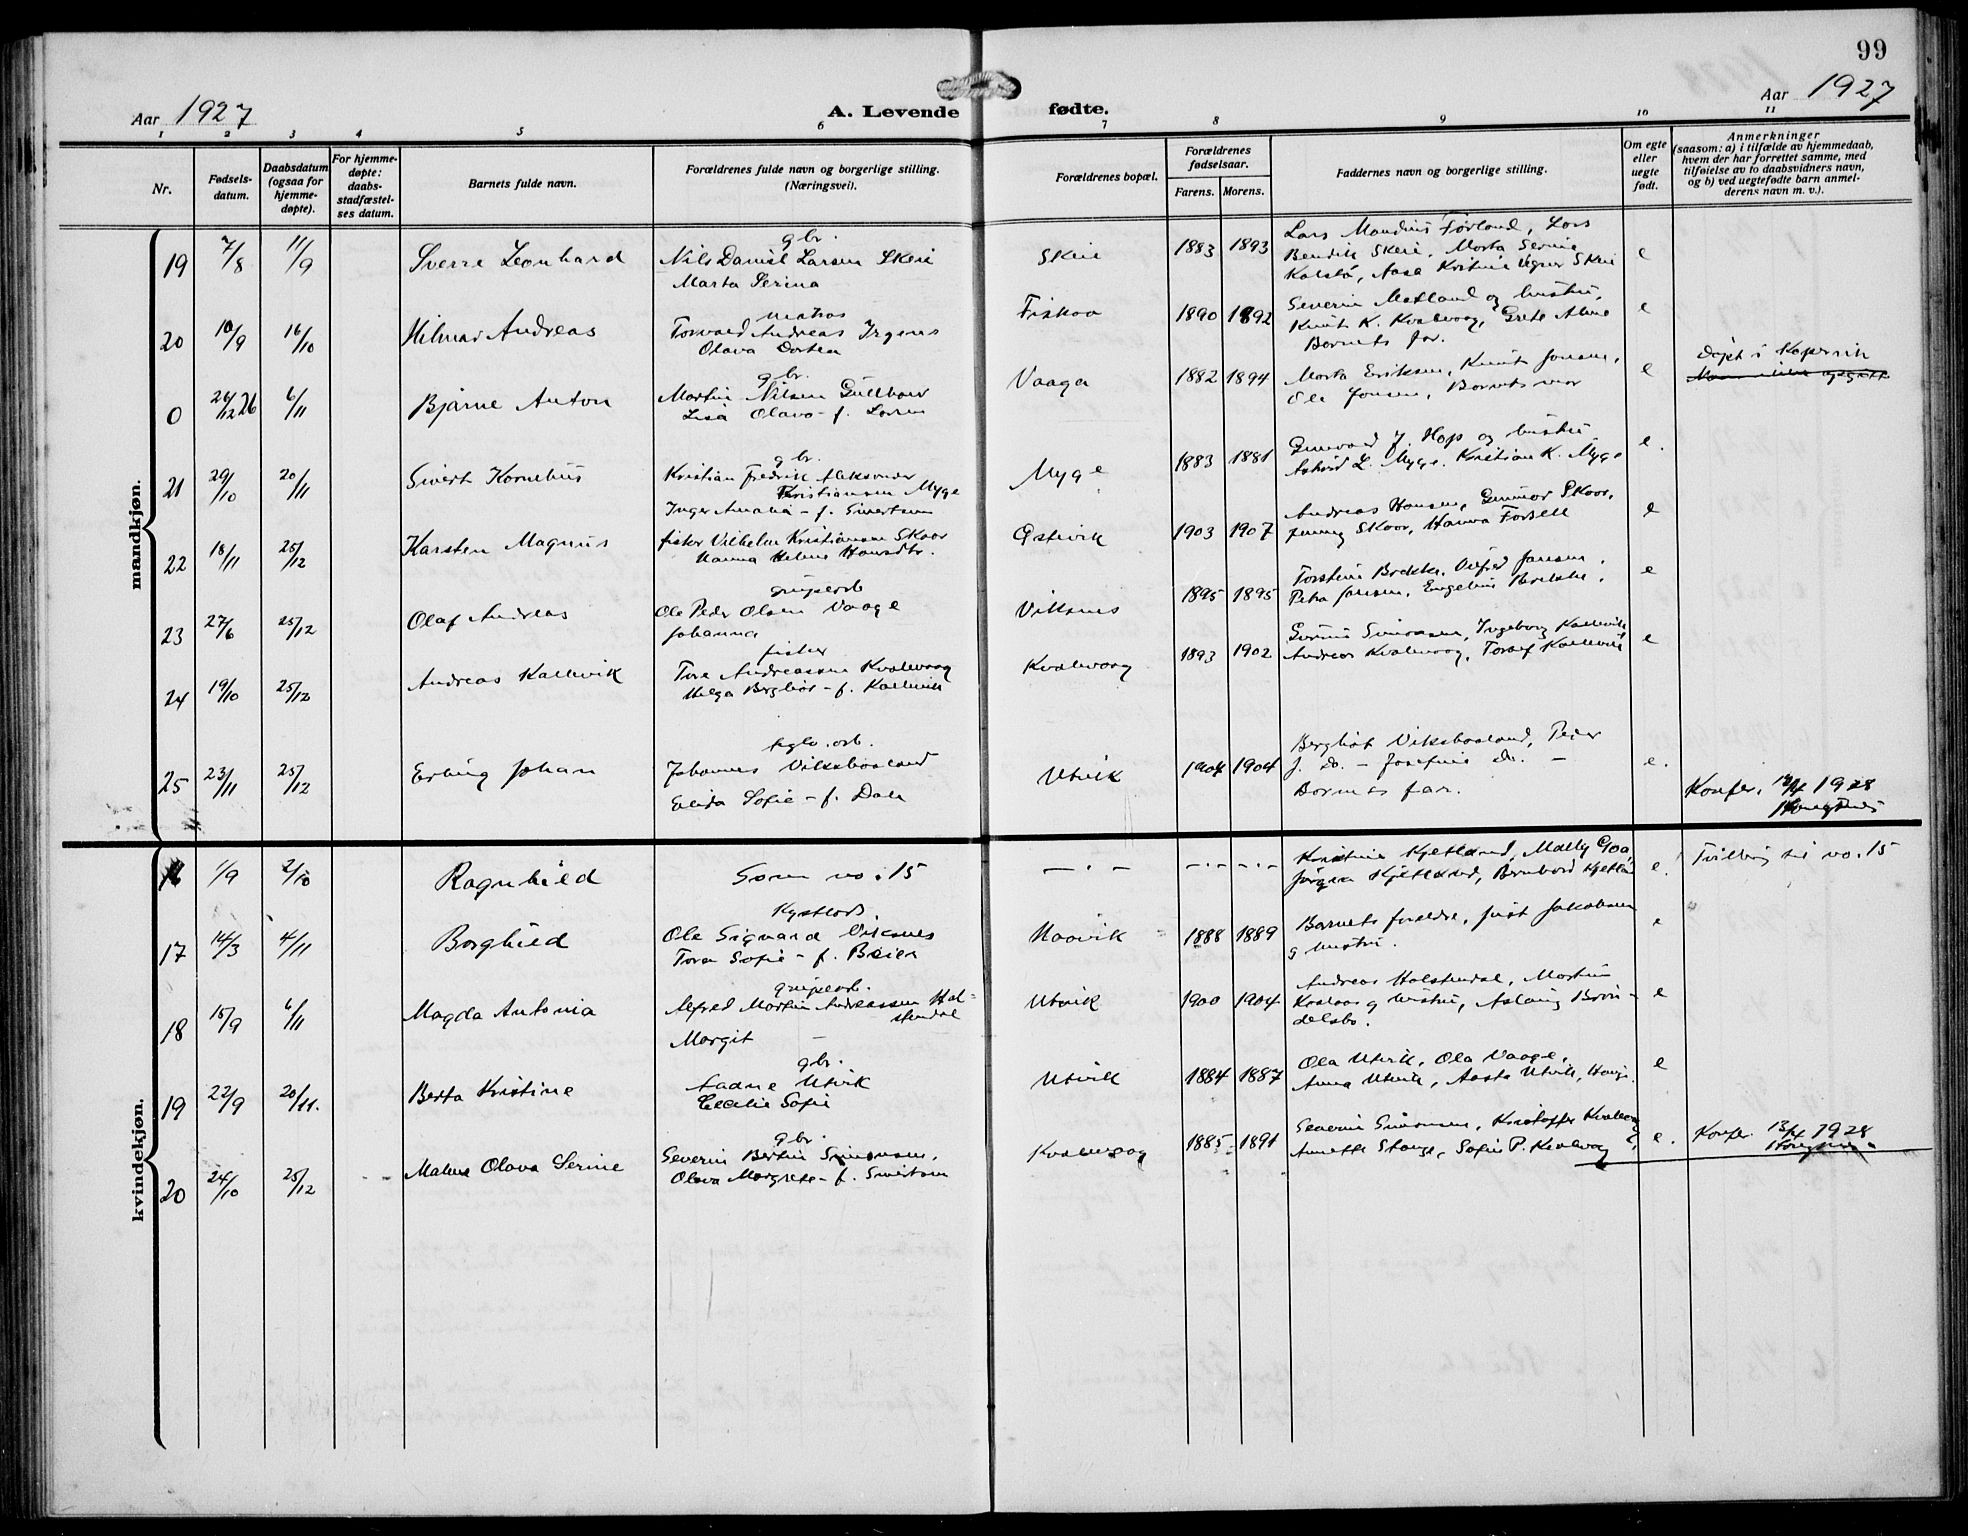 99
Aar 1927
A. Levende fødte.
Aar 1927
1 2 3 4 5 6 7 8 9 10 11
Nr.
Fødsels-
datum.
Daabsdatum
(ogsaa for
hjemme-
døpte).
For hjemme-
døpte:
daabs-
stadfæstel-
ses datum.
Barnets fulde navn.
Forældrenes fulde navn og borgerlige stilling.
(Næringsvei).
Forældrenes bopæl.
Forældrenes
fødselsaar.
Farens. Morens.
Faddernes navn og borgerlige stilling.
Om egte
eller
uegte
født.
Anmerkninger
(saasom: a) i tilfælde av hjemmedaab,
hvem der har forrettet samme, med
tilføielse av to daabsvidners navn,
og b) ved uegtefødte barn anmel-
derens navn m. v.).
mandkjøn.
19 7/8 11/9 Sverre Leonhard
gbr.
Nils Daniel Larsen Skeie
Marta Serina
Skeie 1883 1893
Lars Mandius Førland, Lars
Bendik Skeie, Marta Serine
Kolstø, Aasa Kristine Skeie
e
20 10/9 16/10 Hilmar Andreas
matros
Torvald Andreas Irgens
Olava Dortea
Fiskaa 1890 1892
Severin Matland og hustru,
Knut K. Kvalevaag, Grete Aline
Barnets far.
e
0 24/12 26 6/11 Bjarne Anton
gbr.
Martin Nilsen
Lisa Olava - f. Larsen
Vaaga 1882 1894
Marta Eriksen, Knut Jonsen,
Ole Jonsen, Barnets mor
e
Døpt i Kopervik
21 29/10 20/11 Sivert Kornelius
gbr.
Kristian Fredrik Aleksander
Kristiansen Myge
Inger Amalia - f. Sivertsen
Myge 1883 1881
Gunvald J. Hop og hustru
L. Myge. Kristian K. Myge
e.
22 18/11 25/12 Karsten Magnus
fisker Vilhelm Kristiansen Skaar
Hanna Helene Hansdtr.
Østevik 1903 1907
Andreas Hansen, Gunnar Skaar,
Jenny Skaar, Hanna Forsell
e
23 27/6 25/12 Olaf Andreas
grupearb
Ole Peder Olsen Vaage
Johanna
Viksnes 1895 1895
Torstein Brekke, Alfred Jansen,
Petra Jansen, Engeline Brekke.
e
24 19/10 25/12 Andreas Kallevik
fisker
Tore Andreassen Kvalevaag
Helga Bergliot - f. Kallevik
Kvalevaag 1893 1902
Simonsen, Ingeborg Kallevik
Andreas Kvalevaag, Toralf Kallevik
e
25 23/11 25/12 Erling Johan
Johannes Viksbaaland
Elida Sofie - f. Dale
Utvik 1904 1904
Bergliot Viksbaaland, Peder
J. Do. - Josefine Do. -
Barnets far.
e.
Konfer. 12/4 1928
kvindekjøn.
16 1/9 2/10 Ragnhild
Som no. 15
— . — — . — — . —
Kristine Kjetland, Mally Goa,
Jørgen Kjetland, Bernhard Kjetland
e.
Tvilling til no. 15
17 14/3 4/11 Borghild
Kystlods.
Ole Sigvard Viksnes
Tora Sofie - f. Beier
Haavik 1888 1889
Barnets foreldre, Just Jakobsen
g hustru.
e
18 15/9 6/11 Magda Antonia
grupearb.
Alfred Martin Andreassen Hol-
stendal
Margit —
Utvik 1900 1904
Andreas Holstendal, Martin
g hustru, Aslaug Brøn-
delsbo.
e
19 22/9 20/11. Berta Kristine
gbr.
Aadne Utvik
Cecilie Sofie
Utvik 1884 1887
Ola Utvik, Ola Vaage,
Anna Utvik, Aasta Utvik,
e
20 24/10 25/12 Malene Olava Serine
gbr.
Severin Bertin Simonsen,
Olava Margrete - f. Sivertsen
Kvalevaag 1885 1891
Severin Simonsen, Kristoffer Kvalevaag
Annette Stange, Sofie P. Kvalevaag
e.
Konfer. 13/4 1928